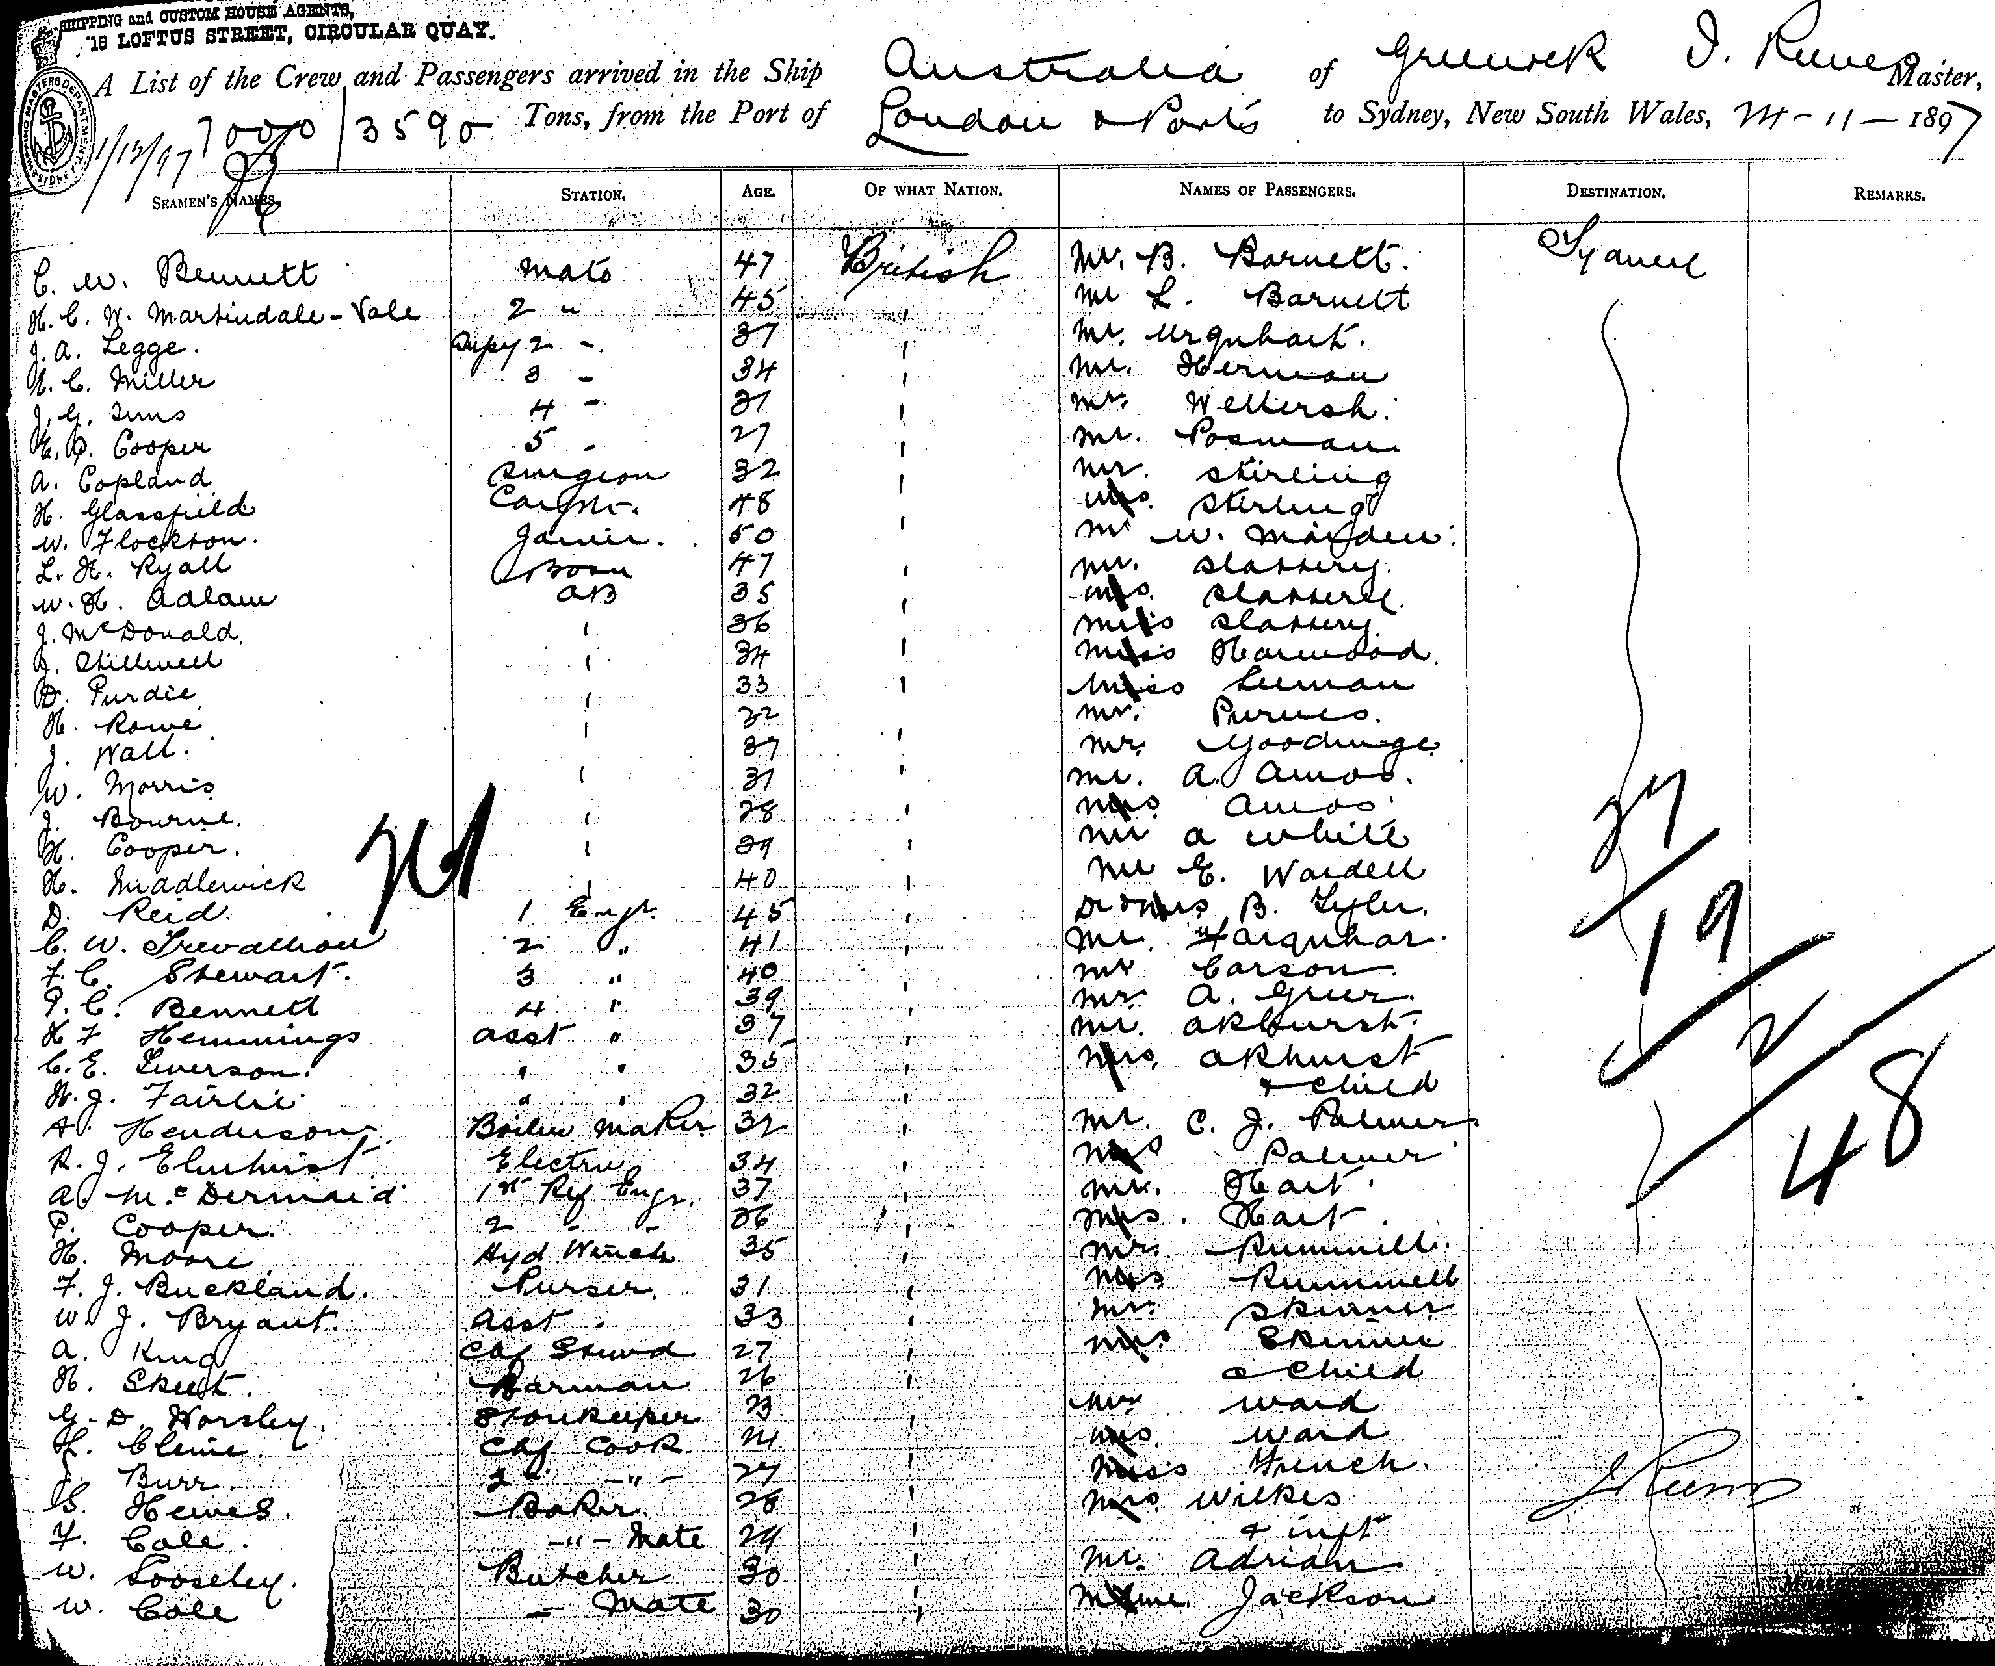 SHIPPING and CUSTOM HOUSE AGENTS,
18 LOFTUS STREET, CIRCULAR QUAY.
A List of the Crew and Passengers arrived in the Ship Australia of Greenock Master,
7000/3590 Tons, from the Port of London & Ports to Sydney, New South Wales, 24-11-1897
1/12/97
SEAMEN'S NAMES. STATION. AGE. OF WHAT NATION. NAMES OF PASSENGERS. DESTINATION. REMARKS.
C. W. Bennett Mate 47 British Mr. B. Barnett. Sydney
H. C. W. Martindale-Vale 2 " 45 " Mr L. Barnett
J. A. Legge. Supy 2 - 37 " Mr. Urquhart.
H. C. Miller 3 - 34 " Mr. Herman
J. G. Sims 4 - 31 " Mr.
E. P. Cooper 5 - 27 " Mr. Posman
A. Copland Surgeon 32 " Mr. Stirling
H. Glassfield Carptr. 48 " Mrs. Sterling
W. Flockton. Joiner. 50 " Mr W.
L. H. Ryall Bosn 47 " Mr. Slattery
W. H. Adlam AB 35 " Mrs. Slattery
J. McDonald. " 36 " Miss Slattery
J. Stillwell " 34 " Miss Harwood
D. Purdie " 33 " Miss Leeman
H. Rowe " 32 " Mr. Purves.
J. Wall. " 37 " Mr. Goodinge
W. Morris " 31 " Mr. A. Amos.
J. Bourne. " 28 " Mrs Amos
H. Cooper. " 39 " Mr A White
H. Middlewick " 40 " Mr E. Wardell
D. Reid. 1 Engr. 45 " B. Tyler.
C. W. Trevathan 2 " 41 " Mr. Farquhar.
F. C. Stewart. 3 " 40 " Mr Carson
P. C. Bennett 4 " 39 " Mr A. Greer.
H F Hemmings Asst " 37 " Mr. Akhurst.
C. E. Iverson. " " 35 " Mrs. Akhurst
H. J. Fairlie " " 32 " & Child
A. Henderson Boiler Maker 32 " Mr. C. J. Palmer
R. J. Elmhirst Electrn 34 " Mrs Palmer
A. McDermaid 1st Ref Engr. 37 " Mr. Hart.
P. Cooper. 2 - - 36 " Mrs. Hart.
H. Moore Hyd Winch 35 " Mr. Rummell.
F. J. Buckland. Purser. 31 " Mrs Rummell
W. J. Bryant. Asst. 33 " Mr. Skinner
A. King 27 " Mrs Skinner
H. Skeet. Barman 26 " & Child
G. D. Horsley. Storekeeper 23 " Mr Ward
H. Cleine. Cook 24 " Mrs. Ward
J. Burr. 2 -"- 27 " Miss French.
S. Hewes. Baker 28 " Mrs Wilkes
F. Cole. -"- Mate 29 " & inft
W. Looseley. Butcher 30 " Mr. Adrian
W. Cole - Mate 30 " Mme Jackson
27
19
2
48